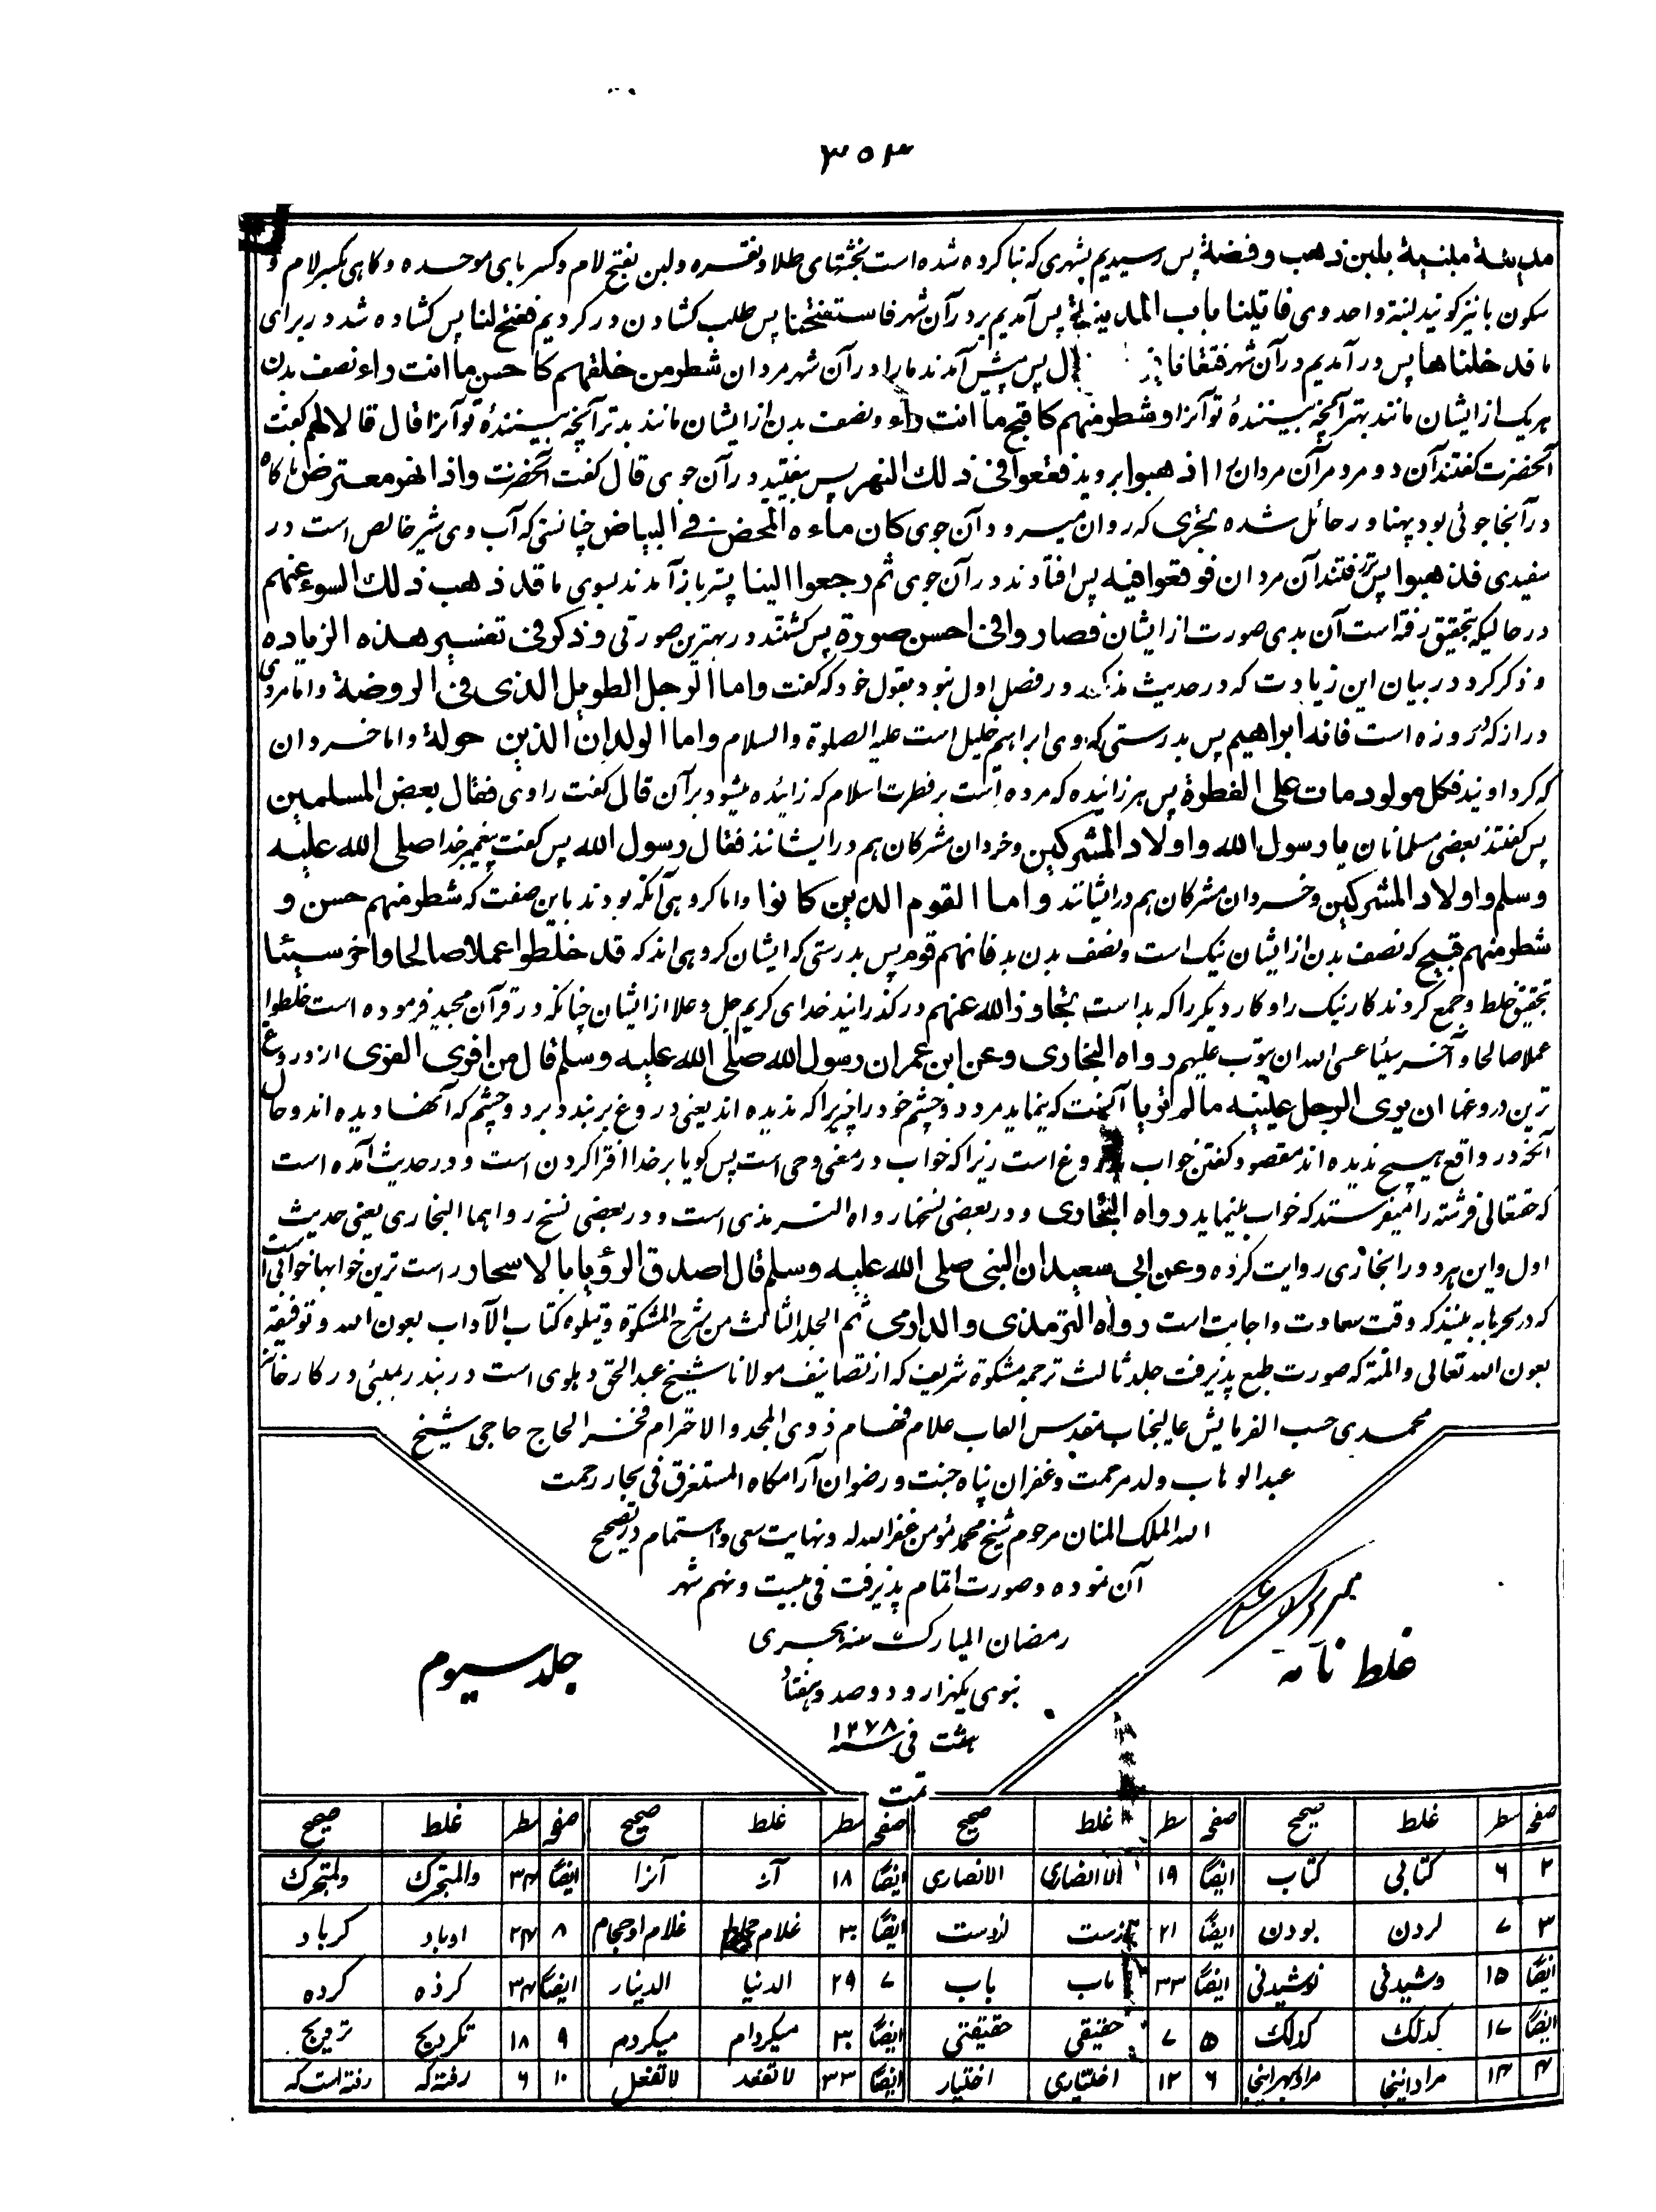 ۳۵۴
مدينة مبنية بلبن ذهب وفضة پس رسیدیم بشهری که بنا کرده شده است بخشتهای طلا ونقره ولبن بفتح لام وکسر بای موحده وکاهی بکسر لام و
سکون با نیز کویند لبنة واحد وی فاتينا باب المدينة پس آمدیم بر در آن شهر فاستفتحنا پس طلب کشادن در کردیم ففتح لنا پس کشاده شد در برای
ما فدخلناها پس در آمدیم در آن شهر فتلقانا پس پیش آمدند ما را در آن شهر مردان شطر من خلقهم كاحسن ما انت راء نصف بدن
هریک از ایشان مانند بهتر آنچه بیننده تو آنرا وشطر منهم كاقبح ما انت راء ونصف بدن از ایشان مانند بدتر آنچه بیننده تو آنرا قال قالا لهم کفت
آنحضرت کفتند آن دو مرد مر آن مردان را اذهبوا بروید فقعوا فی ذلك النهر پس بیفتید در آن جوی قال کفت آنحضرت واذا نهر معترض ناکاه
در آنجا جوئی بود پهناور حائل شده یجری که روان میرود آن جوی كان ماءه المحض فی البياض چنانستی که آب وی شیر خالص است در
سفیدی فذهبوا پس رفتند آن مردان فوقعوا فيه پس افتادند در آن جوی ثم رجعوا الينا پستر باز آمدند بسوی ما قد ذهب ذلك السوء عنهم
در حالیکه بتحقیق رفته است آن بدی صورت از ایشان فصاروا فی احسن صورة پس کشتند در بهترین صورتی وذكر فی تفسير هذه الزياده
و ذکر کرد در بیان این زیادت که در حدیث مذکور در فصل اول نبود بقول خود که کفت واما الرجل الطويل الذی فی الروضة واما مردی
دراز که در روزه است فانه ابراهيم پس بدرستی که وی ابراهیم خلیل است علیه الصلوة والسلام واما الولدان الذين حوله واما خردان
که کرد اویند فكل مولود مات علی الفطرة پس هر زائیده که مرده است بر فطرت اسلام که زائیده میشود بر آن قال کفت راوی فقال بعض المسلمين
پس کفتند بعضی مسلمانان يا رسول الله واولاد المشركين وخردان مشرکان هم در ایشانند فقال رسول الله پس کفت پیغمبر خدا صلی الله عليه
وسلم واولاد المشركين وخردان مشرکان هم در ایشانند واما القوم الذين كانوا واما کروهی آنکه بودند باین صفت که شطر منهم حسن و
شطر منهم قبيح که نصف بدن از ایشان نیک است ونصف بدن بد فانهم قوم پس بدرستی که ایشان کروهی اند که قد خلطوا عملا صالحا واخر سيئا
بتحقیق خلط وجمع کردند کار نیک را وکار دیکر را که بد است تجاوز الله عنهم در کذرانید خدای کریم جل وعلا از ایشان چنانکه در قرآن مجید فرموده است خلطوا
عملا صالحا وآخر سیئا عسی الله ان یتوب علیهم رواه البخاری وعن ابن عمر ان رسول الله صلی الله عليه وسلم قال من افری الفری از دروغ
ترین دروغها ان يری الرجل عينيه ما لم تريا آنست که بنماید مرد دو چشم خود را چیزیرا که ندیده اند یعنی دروغ بربندد بر دو چشم که آنها دیده اند وحال
آنکه در واقع هیچ ندیده اند مقصود کفتن خواب دروغ است زیرا که خواب در معنی وحی است پس کویا بر خدا افترا کردن است و در حدیث آمده است
که حقتعالی فرشته را میفرستد که خواب مینماید رواه البخاری و در بعضی نسخها رواه الترمذی است و در بعضی نسخ رواهما البخاری یعنی حدیث
اول واین هر دو را بخاری روایت کرده وعن ابی سعيد ان النبی صلی الله عليه وسلم قال اصدق الرؤيا بالاسحار راست ترین خوابها خوابی است
که در سحرها به بینند که وقت سعادت واجابت است رواه الترمذی والدارمی ثم الجلد الثالث من شرح المشکوة ویتلوه کتاب الآداب بعون الله وتوفیقه
بعون الله تعالی والمنة که صورت طبع پذیرفت جلد ثالث ترجمه مشکوة شریف که از تصانیف مولانا شیخ عبد الحق دهلوی است در بندر بمبئی در کارخانه
محمدی حسب الفرمایش عالیجناب مقدس القاب علام فهام ذوی المجد والاحترام فخر الحاج حاجی شیخ
عبد الوهاب ولد مرحمت وغفران پناه جنت ورضوان آرامکاه المستغرق فی بحار رحمت
الله الملک المنان مرحوم شیخ محمد مؤمن غفر الله له ونهایت سعی واهتمام در تصحیح
آن نموده وصورت اتمام پذیرفت فی بیست ونهم شهر
رمضان المبارک سنه هجری
نبوی یکهزار ودوصد وهفتاد
هشت فی سنه ۱۲۷۸
تمت
غلط نامه
جلد سیوم
صفحه سطر غلط صحیح صفحه سطر غلط صحیح صفحه سطر غلط صحیح صفحه سطر غلط صحیح
۲ ۶ کتابی کتاب ایضًا ۱۹ الاانصاری الانصاری ایضًا ۱۸ آنر آنرا ایضًا ۳۴ والمتبرک ولمتبرک
۳ ۷ لردن بودن ایضًا ۲۱ ازوست ایضًا ۳۰ غلام غلام او حجام ۸ ۲۴ اوباد کرباد
ایضًا ۱۵ وشیدنی نوشیدنی ایضًا ۳۳ باب ۷ ۲۹ الدنیا الدینار ایضًا ۳۴ کرذه کرده
ایضًا ۱۷ کدلک کذلک ۵ ۷ حقیقی حقیقتی ایضًا ۳۰ میکردام میکردم ۹ ۱۸ تکریج ترویج
۴ ۱۴ مراد اینجا مراد بهر اینجا ۶ ۱۲ اختیاری اختیار ایضًا ۳۳ لا تفعد لا تفعل ۱۰ ۶ رفته که رفته است که